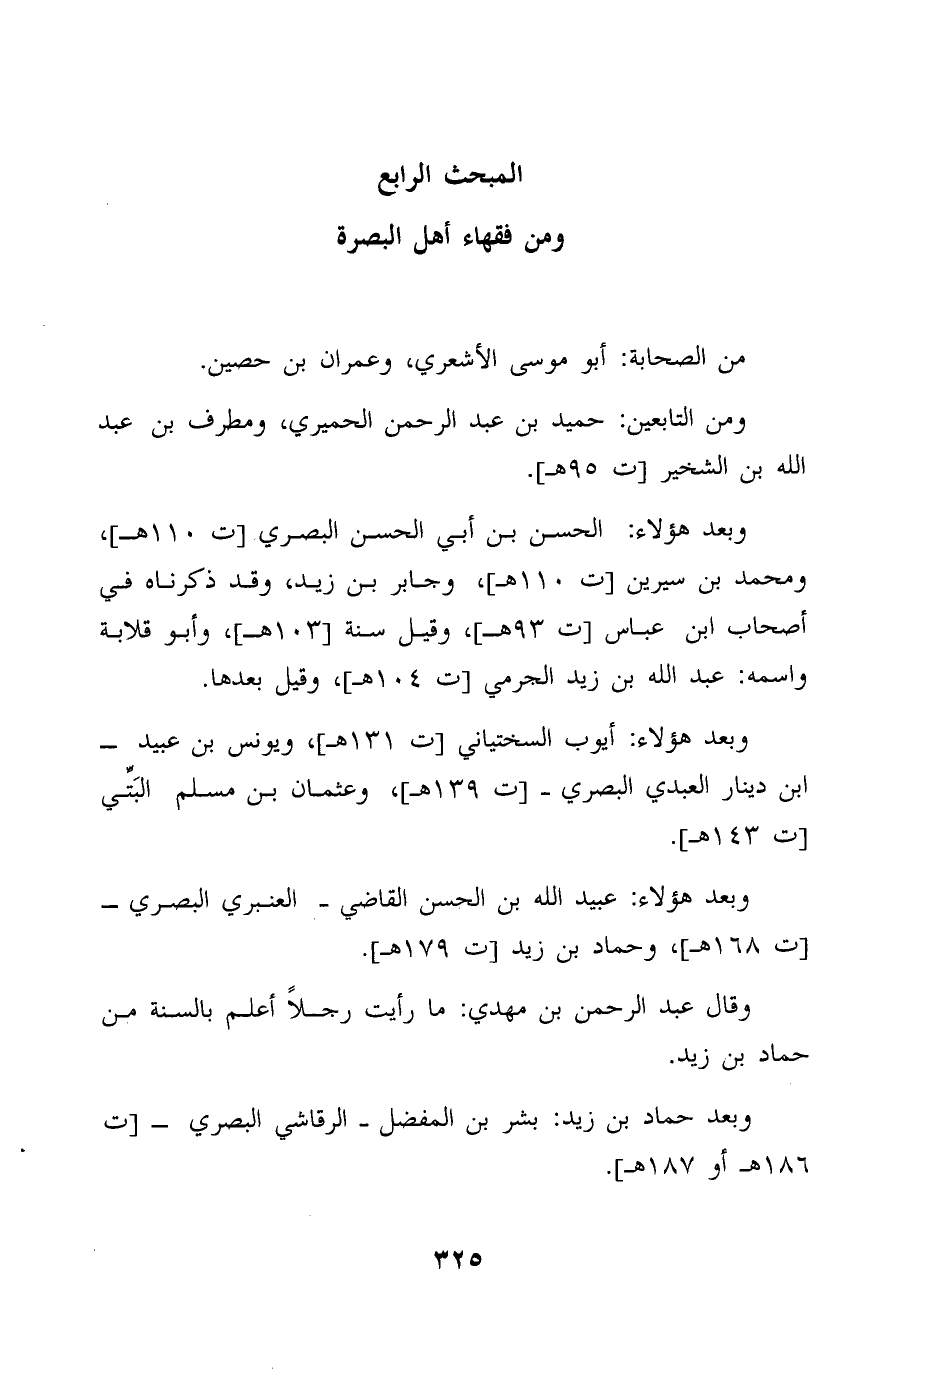 المبحث الرابع
ومن فقهاء أهل البصرة
من الصحابة: أبو موسى الأشعري، وعمران بن حصين.
ومن التابعين: حميد بن عبد الرحمن الحميري، ومطرف بن عبد
الله بن الشخير [ت ٩٥هـ].
وبعد هؤلاء: الحسن بن أبي الحسن البصري [ت ١١٠هـ]،
ومحمد بن سيرين [ت ١١٠هـ]، وجابر بن زيد، وقد ذكرناه في
أصحاب ابن عباس [ت ٩٣هـ]، وقيل سنة [١٠٣هـ]، وأبو قلابة
واسمه: عبد الله بن زيد الجرمي [ت ١٠٤هـ]، وقيل بعدها.
وبعد هؤلاء: أيوب السختياني [ت ١٣١هـ]، ويونس بن عبيد –
ابن دينار العبدي البصري - [ت ١٣٩هـ]، وعثمان بن مسلم البَتِّي
[ت ١٤٣هـ].
وبعد هؤلاء: عبيد الله بن الحسن القاضي - العنبري البصري –
[ت ١٦٨هـ]، وحماد بن زيد [ت ١٧٩هـ].
وقال عبد الرحمن بن مهدي: ما رأيت رجلاً أعلم بالسنة من
حماد بن زيد.
وبعد حماد بن زيد: بشر بن المفضل - الرقاشي البصري – [ت
١٨٦هـ أو ١٨٧هـ].
٣٢٥